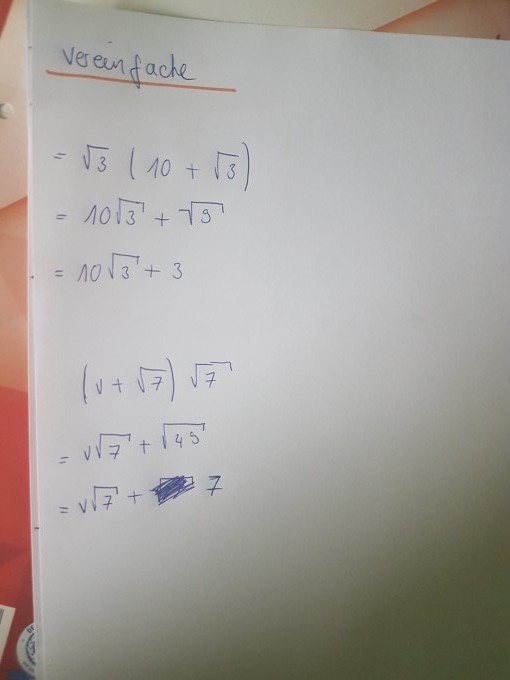 Vereinfache
= √3 (10 + √3)
= 10√3 + √9
= 10√3 + 3
(v + √7) √7
= v√7 + √49
= v√7 + 7